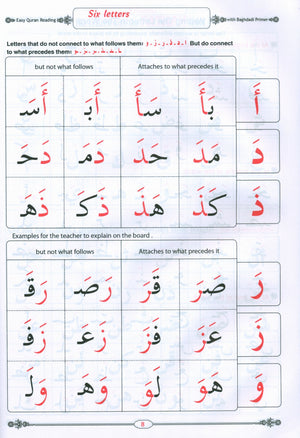 Easy Quran Reading
Six letters
with Baghdadi Primer
Letters that do not connect to what follows them: أ، د، ذ، ر، ز، و But do connect
to what precedes them:
but not what follows Attaches to what precedes it
أَ بَأَ سَأَ أَبَ أَسَ
دَ مَدَ حَدَ دَمَ دَحَ
ذَ كَذَ هَذَ ذَكَ ذَهَ
Examples for the teacher to explain on the board .
but not what follows Attaches to what precedes it
رَ صَرَ قَرَ رَصَ رَقَ
زَ عَزَ فَزَ زَعَ زَفَ
وَ هَوَ لَوَ وَهَ وَلَ
8